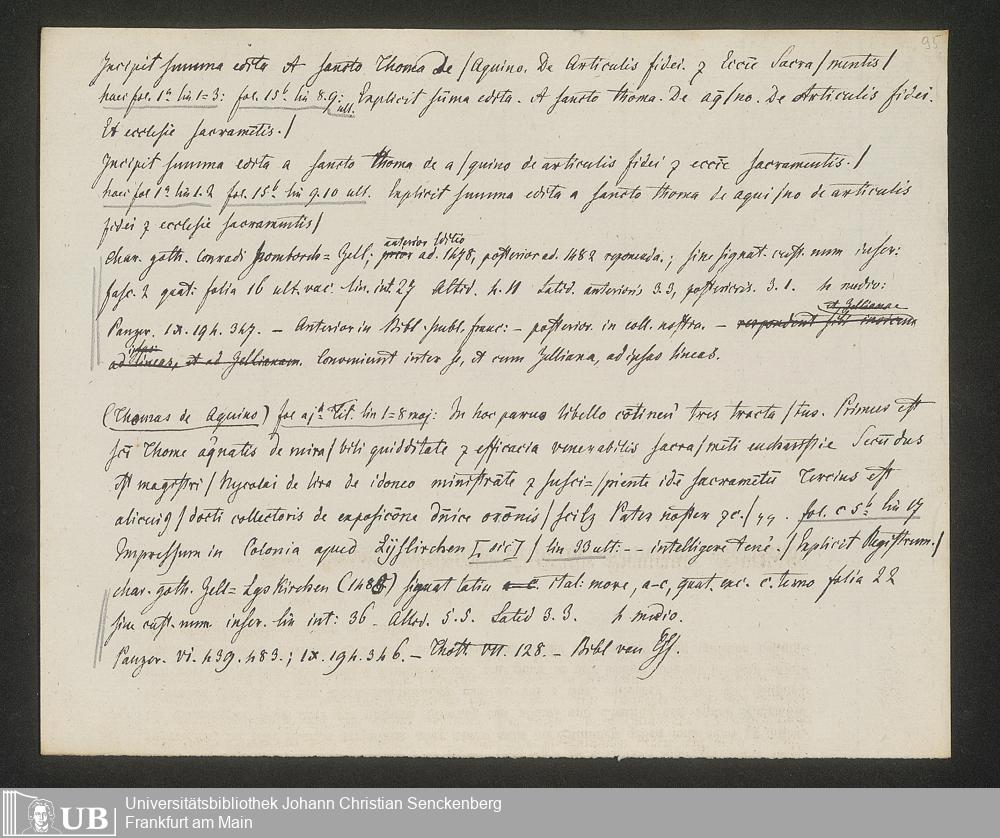 95
Incipit summa edita A sancto Thoma De / Aquino. De Articulis fidei. ⁊ Eccīe Sacra / mentis /
haec fol. 1ᵃ lin 1=3: fol. 15ᵇ. lin 8. 9: ult. Explicit sūma edita. A sancto thoma. De aq̄ / no. De Articulis fidei.
Et ecclesie sacramētis. /
Incipit summa edita a sancto thoma de a / quino de articulis fidei ⁊ eccīe sacramentis. /
haec fol 1ᵃ lin 1. 2 fol. 15ᵇ lin 9. 10 ult. Explicit summa edita a sancto thoma de aqui / no de articulis
fidei ⁊ ecclesie sacramentis /
char. goth. Conradi Homborch = Gelf; anterior Editio ad. 1478, posterior ad. 1482 reponenda.; sine signat. cust. num inscr:
fasc. 2 quat: folia 16 ult. vac. lin. int 27 Altid. 4. 11 Latid. anterioris 3. 3, posterioris. 3. 1. 4 medio:
Panzer. IX. 194. 347. – Anterior in Bibl. publ. franc: – posterior. in coll. nostra. – respondent sibi invicem et Gellianae
ad ipsas lineas, et ad Gellianam. Conveniunt inter se, et cum Gelliana, ad ipsas lineas.
(Thomas de Aquino) fol a jᵃ Tit. lin 1=8 maj: In hoc paruo libello cōtinen̄ tres tracta / tus. Primus est
scī Thome aq̄natis de mira / bili quidditate ⁊ efficacia venerabilis sacra / mēti eucharistie Secūdus
est magistri / Nycolai de lira de idoneo ministrāte ⁊ susci= / piente idē sacramētū Tercius est
alicui9 / docti collectoris de exposicōne dn̄ice orōnis / scilz Pater noster ⁊c. / ,, . fol. c 5ᵇ lin 17
Impressum in Colonia apud Lijskirchen [sic] / lin 33 ult: -- intelligere tenē. / Explicit Registrum. /
char. goth. Gelt= Lyskirchen (148 ) signat latin a–c. ital: more, a–c, quat. exc. c. terno folia 22
sine cust. num inscr. lin int: 36 . Altid. 5. 5. Latid 3. 3. 4 medio.
Panzer. VI. 439. 483.; IX. 194. 346. – Thott. VII. 128. – Bibl van Ess.
UB
Universitätsbibliothek Johann Christian Senckenberg
Frankfurt am Main